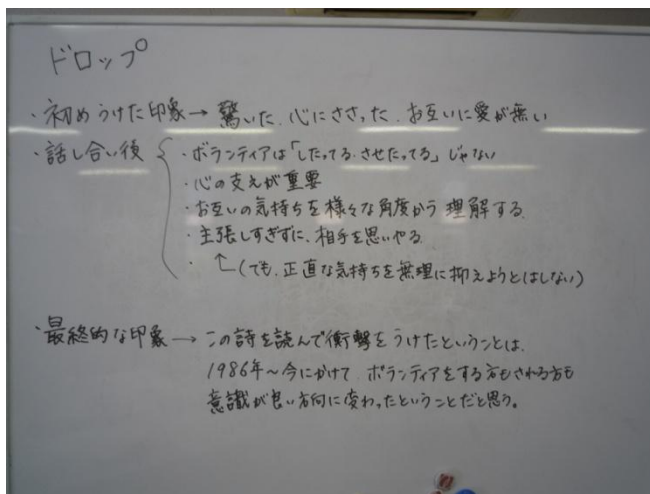 ドロップ
・初めうけた印象→ 驚いた、心にささった、お互いに愛が無い
・話し合い後 { ・ボランティアは「したってる・させたってる」じゃない
・心の支えが重要
・お互いの気持ちを様々な角度から理解する
・主張しすぎずに、相手を思いやる
・ ↑(でも、正直な気持ちを無理に抑えようとはしない)
・最終的な印象→ この詩を読んで衝撃をうけたということは、
1986年～今にかけて、ボランティアをする方もされる方も
意識が良い方向に変わったということだと思う。